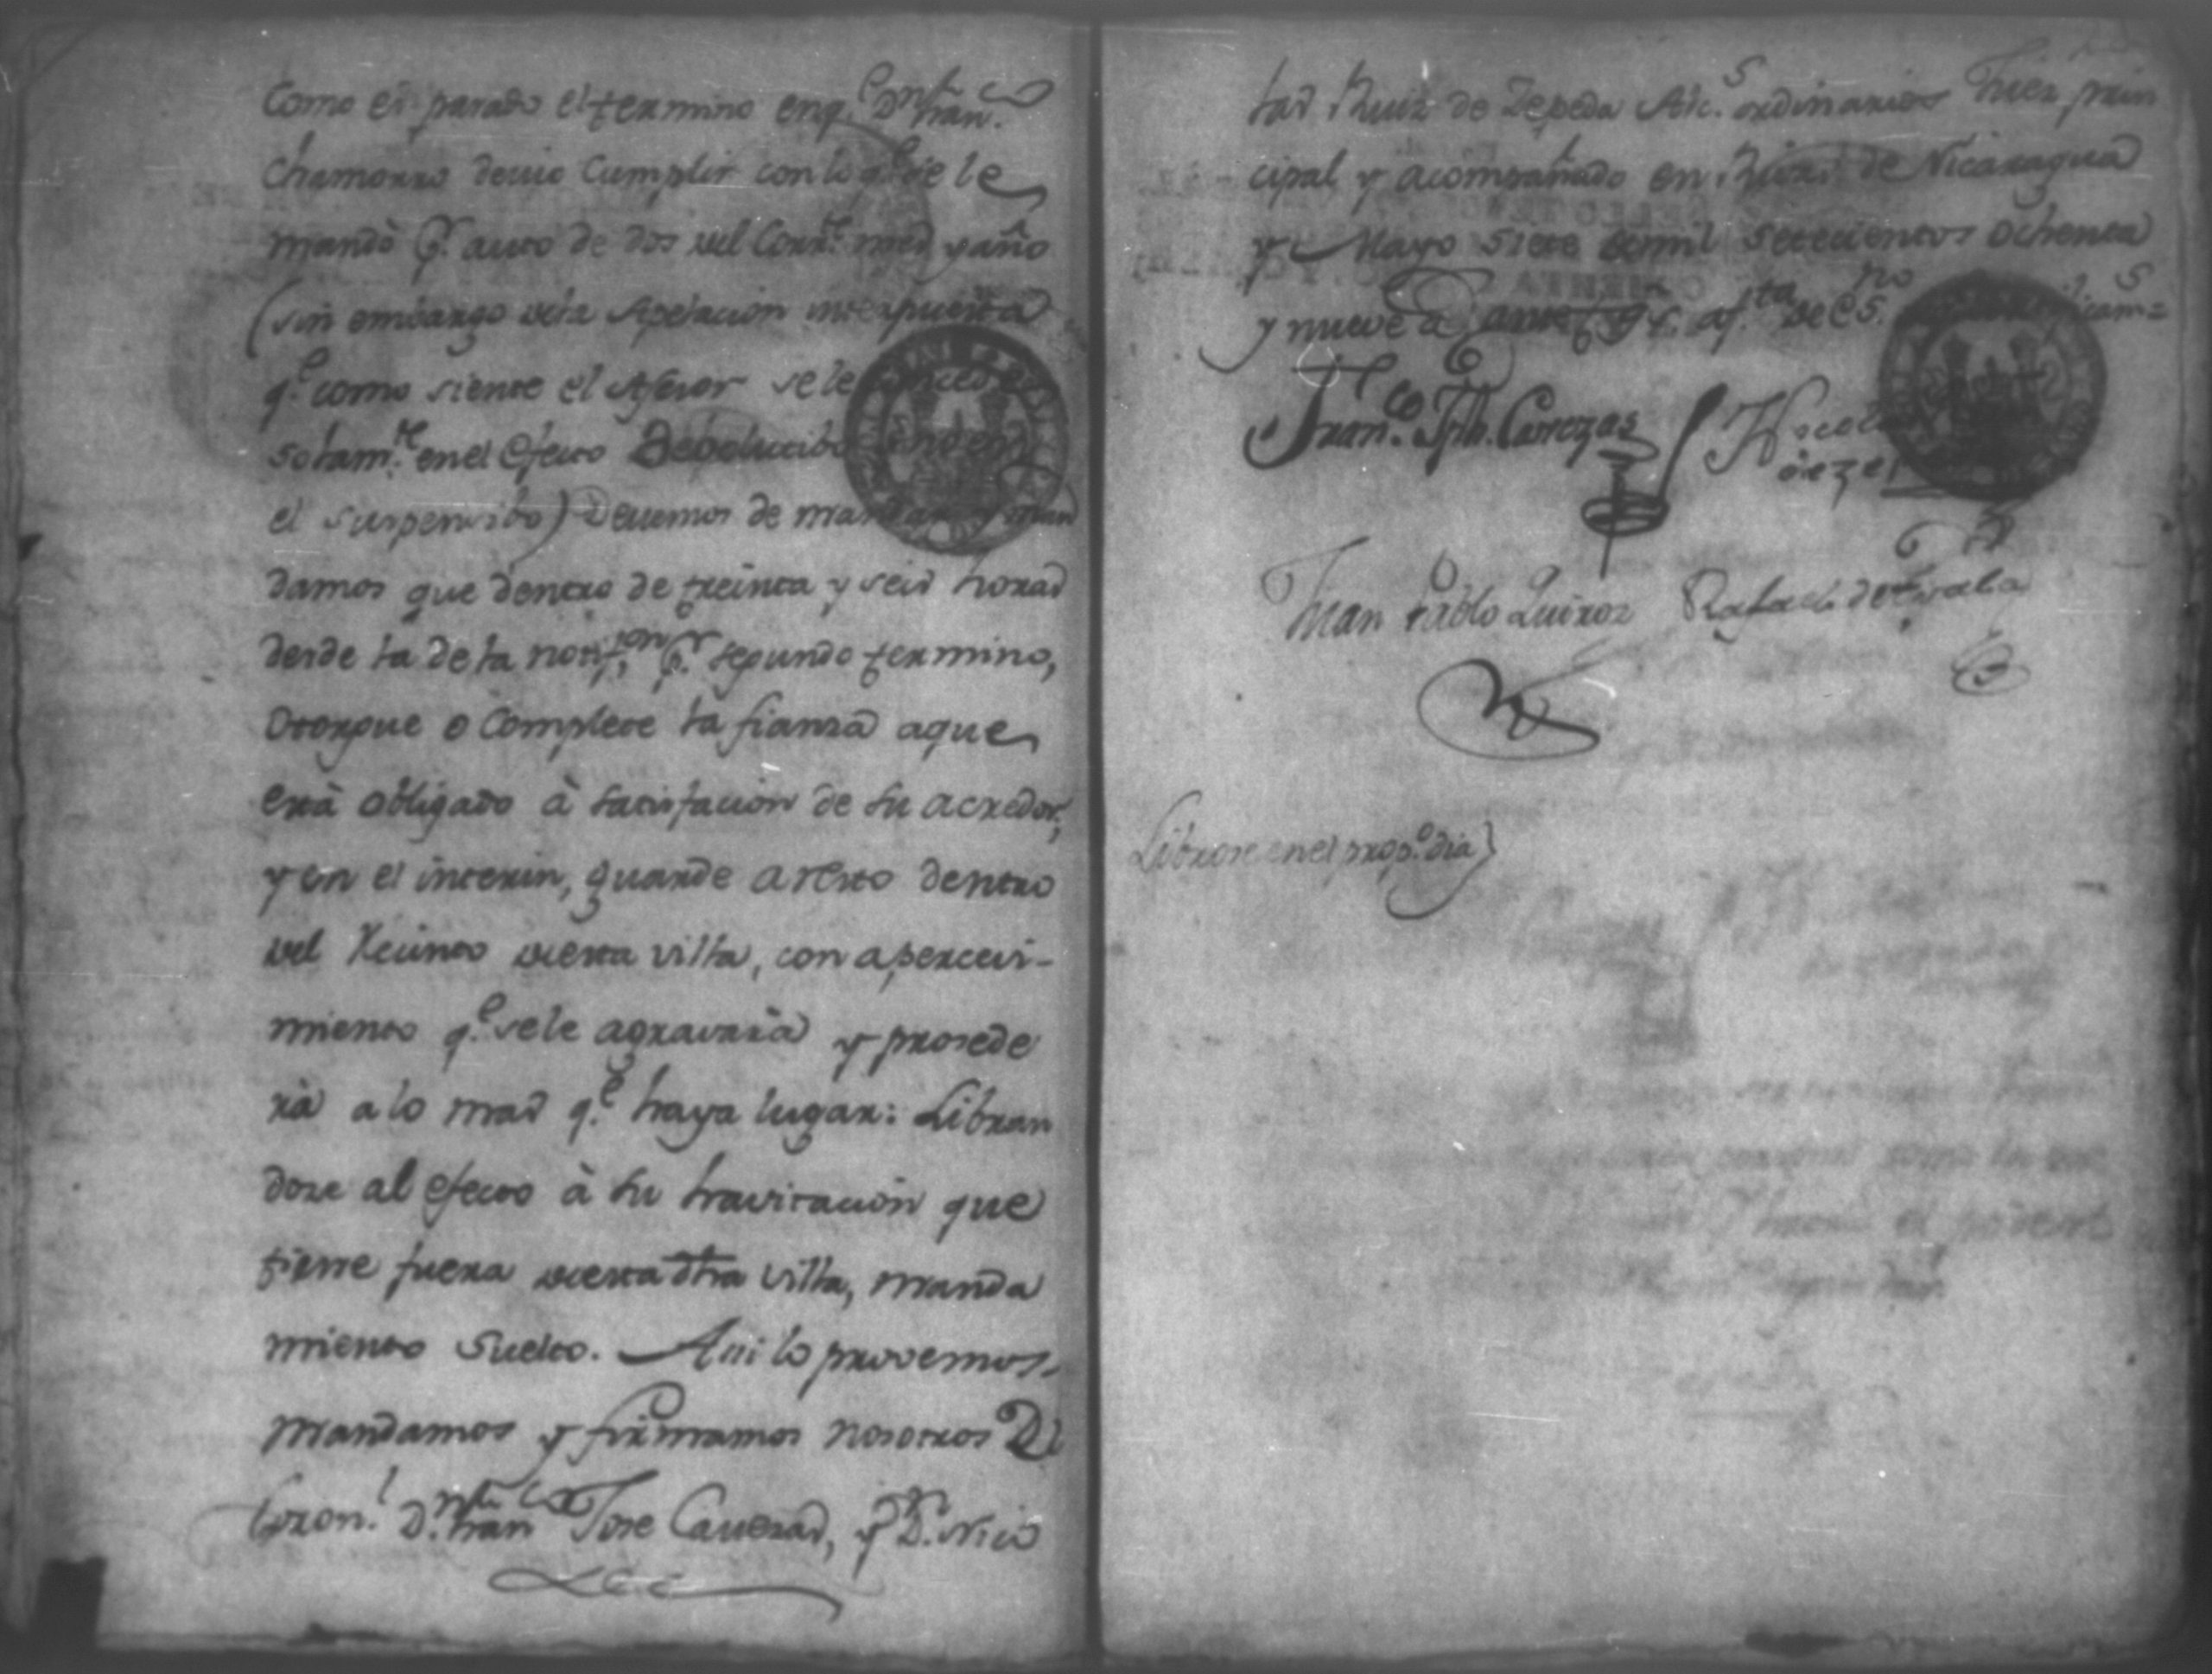 Como es pasado el termino enq.e Dn Fran.co
Chamorro devio Cumplir con lo q.e se le
mandò p.r auto de dos del Corr.te mes y año
(sin embargo de la Apelacion interpuesta
q.e como siente el Asesor se le concede
solam.te en el efecto Debolutibo y no en
el suspensibo) Devemos de mandar y man
damos que dentro de treinta y seis horas
desde la de la notif.on p.r segundo termino,
otorgue o Complete la fianza aque
està obligado à satisfacion de su acredor,
y en el interin, guarde aresto dentro
del Recinto de esta villa, con apercevi-
miento q.e se le agravarà y prosede
rà a lo mas q.e haya lugar: Libran
dose al efecto à su havitacion que
tiene fuera de esta dha villa, manda
miento suelto. Asi lo provemos,
mandamos y firmamos nosotros Dl
Coron.l D.n Fran.co Jose Cavezas, y D.n Nico
las Ruiz de Zepeda Alc.s ordinarios Juez prin
cipal y acompañado en Rivas de Nicaragua
y Mayo siete de mil setecientos ochenta
y nueve a falta de Es.no
Fran.co Jph. Cavezas
Juan Pablo Quiroz Rafael de
Librose en el prop.o dia}